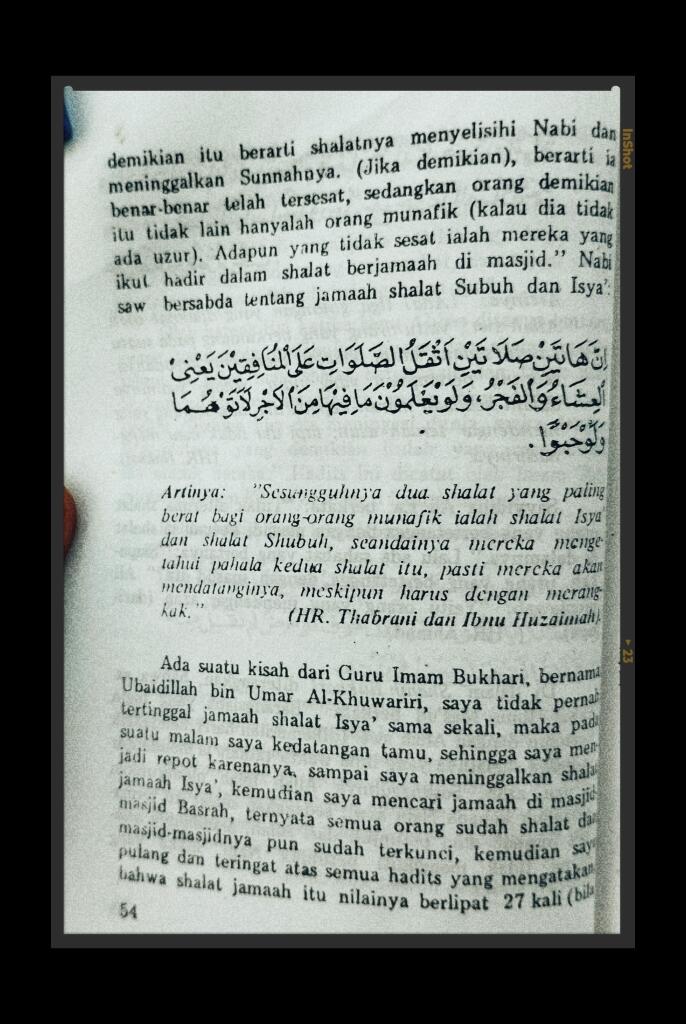 demikian itu berarti shalatnya menyelisihi Nabi dan
meninggalkan Sunnahnya. (Jika demikian), berarti ia
benar-benar telah tersesat, sedangkan orang demikian
itu tidak lain hanyalah orang munafik (kalau dia tidak
ada uzur). Adapun yang tidak sesat ialah mereka yang
ikut hadir dalam shalat berjamaah di masjid.” Nabi
saw bersabda tentang jamaah shalat Subuh dan Isya’:
اِنَّ هَاتَيْنِ صَلَاتَيْنِ اَثْقَلُ الصَّلَوَاتِ عَلَى الْمُنَافِقِيْنَ يَعْنِى
الْعِشَاءَ وَالْفَجْرَ، وَلَوْ يَعْلَمُوْنَ مَا فِيْهَا مِنَ الْاَجْرِ لَاَتَوْهُمَا
وَلَوْحَبْوًا.
Artinya: ”Sesungguhnya dua shalat yang paling
berat bagi orang-orang munafik ialah shalat Isya’
dan shalat Shubuh, seandainya mereka menge-
tahui pahala kedua shalat itu, pasti mereka akan
mendatanginya, meskipun harus dengan merang-
kak.” (HR. Thabrani dan Ibnu Huzaimah).
Ada suatu kisah dari Guru Imam Bukhari, bernama
Ubaidillah bin Umar Al-Khuwariri, saya tidak pernah
tertinggal jamaah shalat Isya’ sama sekali, maka pada
suatu malam saya kedatangan tamu, sehingga saya men-
jadi repot karenanya, sampai saya meninggalkan shalat
jamaah Isya’, kemudian saya mencari jamaah di masjid-
masjid Basrah, ternyata semua orang sudah shalat dan
masjid-masjidnya pun sudah terkunci, kemudian saya
pulang dan teringat atas semua hadits yang mengatakan
bahwa shalat jamaah itu nilainya berlipat 27 kali (bila
54
InShot
23